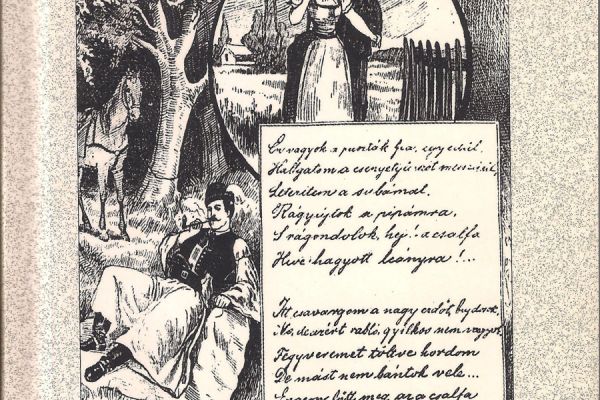 Én vagyok a puszták fia, egyedül,
Hallgatom a csengetyű szót messziről,
Leterítem a subámat,
Rágyújtok a pipámra,
S rágondolok, hej! a csalfa
Hive-hagyott leányra!...
Itt csavargom a nagy erdőt, bujdosok,
No, de azért rabló, gyilkos nem vagyok,
Fegyveremet töltve hordom
De mást nem bántok vele...
Engem lőtt meg az a csalfa